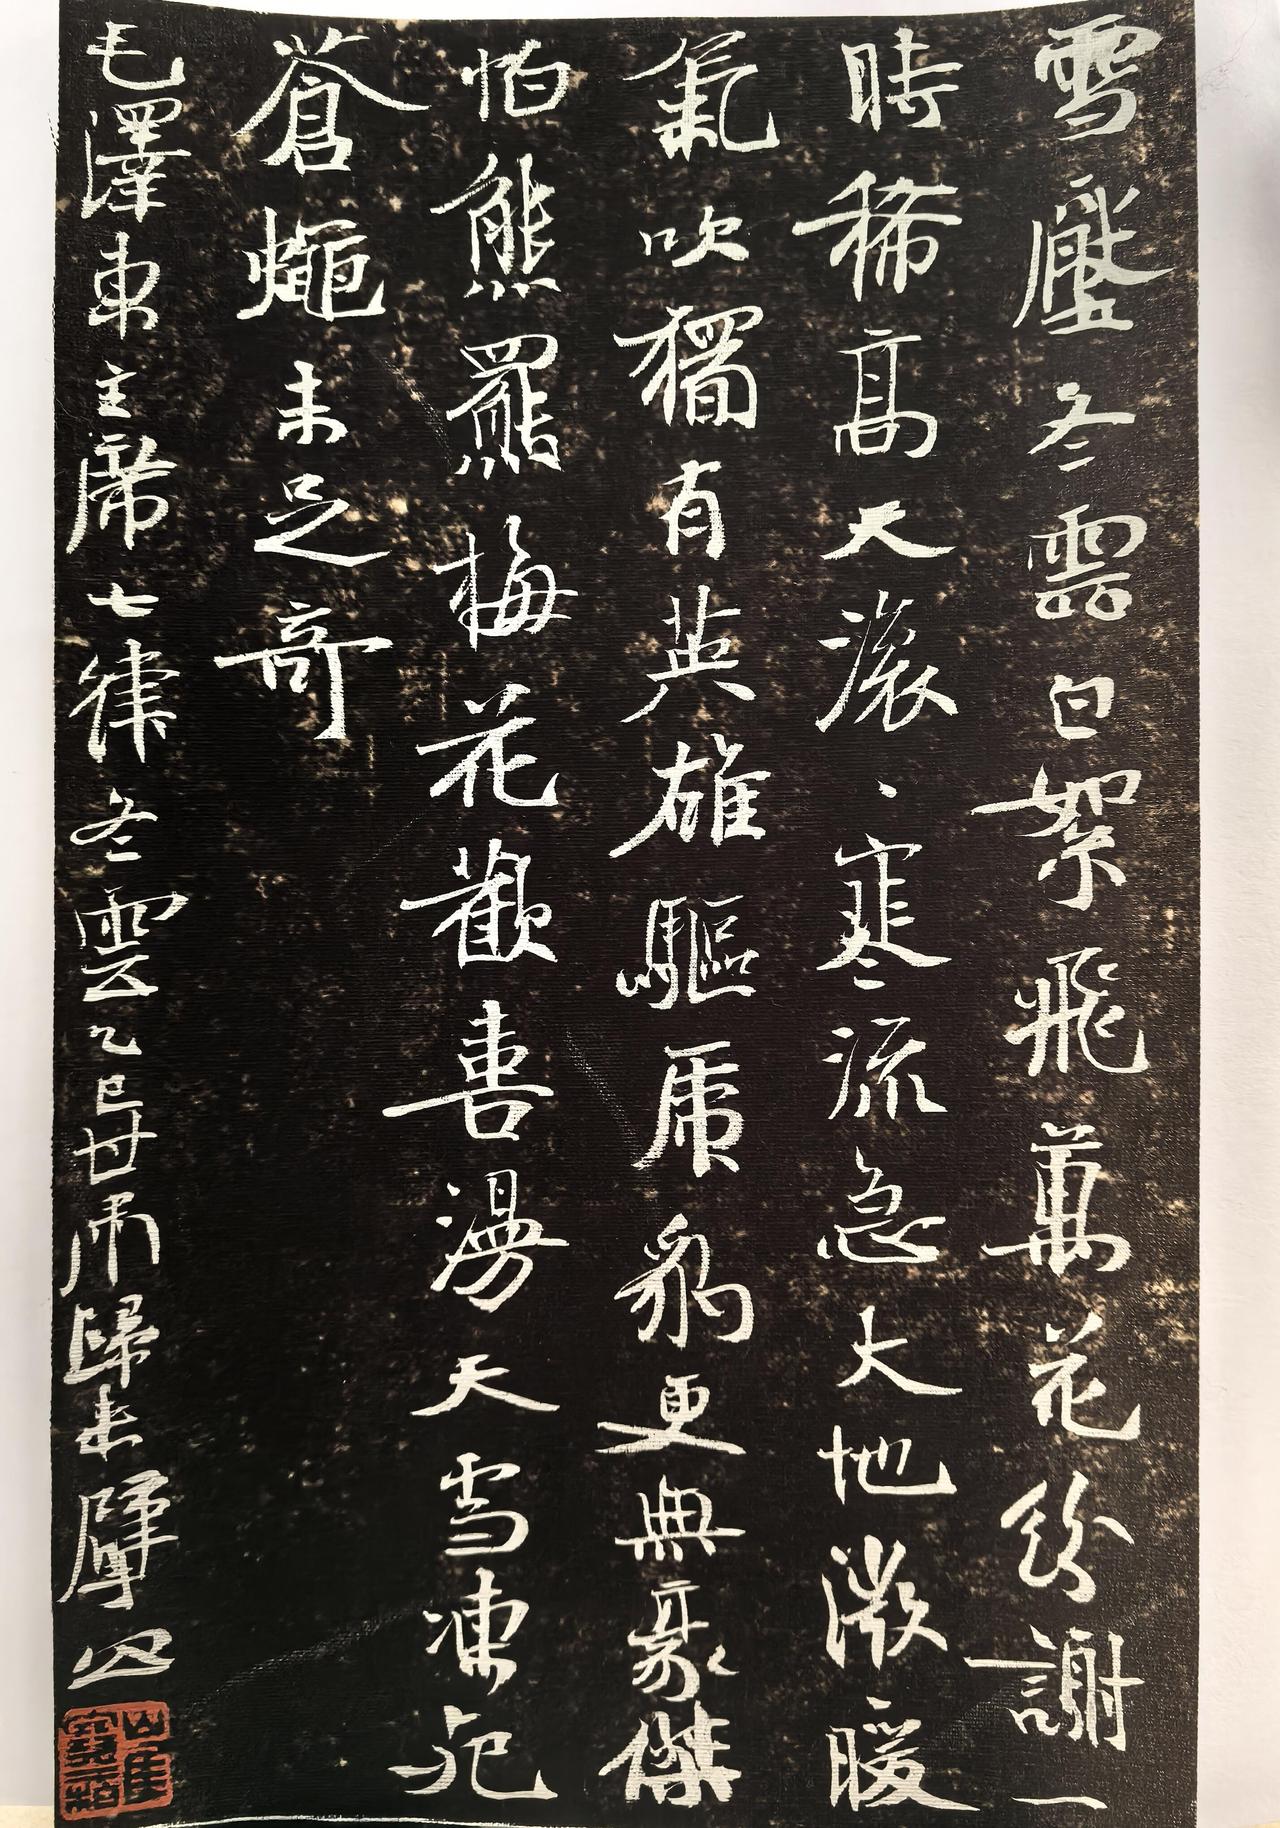 雪壓冬雲白絮飛萬花紛謝一
時稀高天滾、寒流急大地微暖
氣吹獨有英雄驅虎豹更無豪傑
怕熊羆梅花歡喜漫天雪凍死
蒼蠅未足奇
毛澤東主席七律冬雲乙巳廿